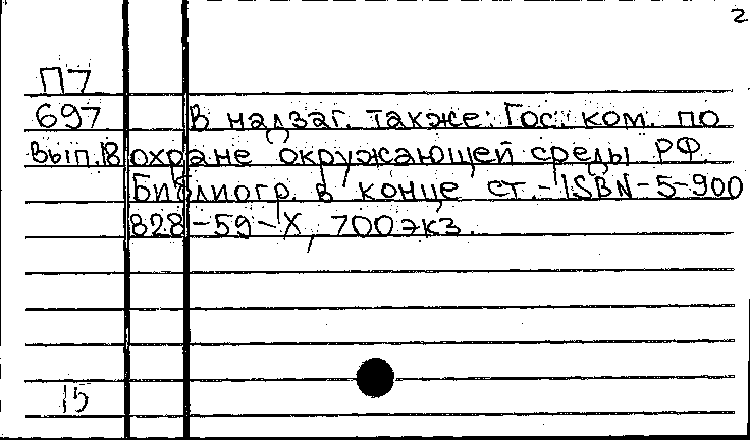 2
П7
697 В надзаг. также: Гос. ком. по
Вып.18 охране окружающей среды РФ.
Библиогр. в конце ст.-ISBN-5-900
828-59-Х, 700 экз.
15